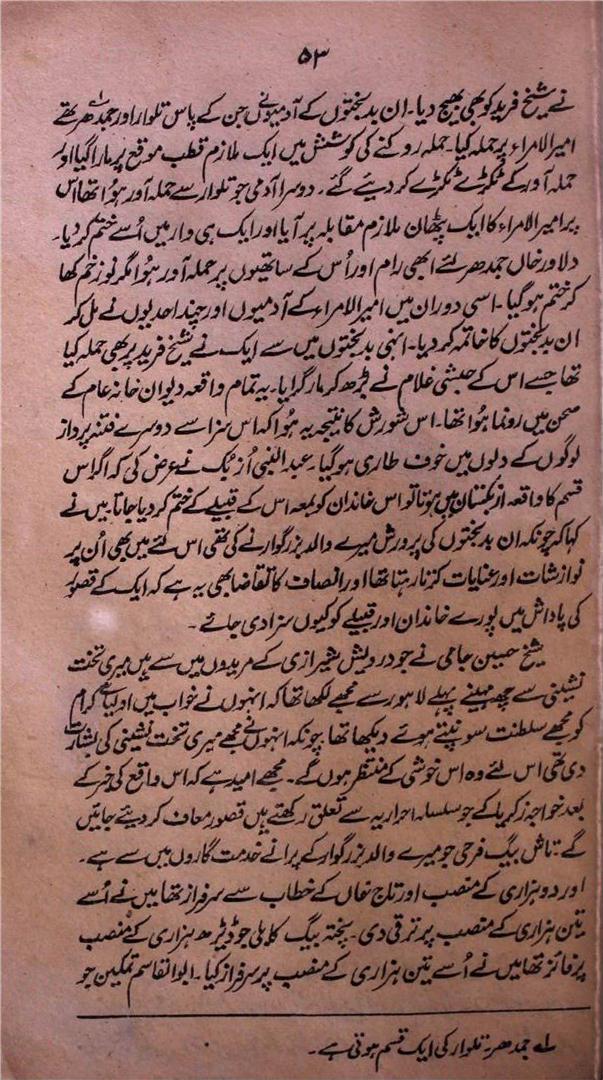 ۵۳
نے شیخ فرید کو بھی بھیج دیا۔ ان بدبختوں کے آدمیوں نے جن کے پاس تلوار اور جمدھر لے تھے
امیرالامراء پر حملہ کیا۔ حملہ روکنے کی کوشش میں ایک ملازم قطب موقع پر مارا گیا اور
حملہ آور کے ٹکڑے ٹکڑے کر دیئے گئے۔ دوسرا آدمی جو تلوار سے حملہ آور ہوا تھا اس
پر امیرالامراء کا ایک پٹھان ملازم مقابلہ پر آیا اور ایک ہی وار میں اُسے ختم کر دیا۔
دلاور خاں جمدھر لئے ابھی رام اور اُس کے ساتھیوں پر حملہ آور ہوا مگر نو زخم کھا
کر ختم ہو گیا۔ اسی دوران میں امیرالامراء کے آدمیوں اور چند احدیوں نے مل کر
ان بدبختوں کا خاتمہ کر دیا۔ انہی بدبختوں میں سے ایک نے شیخ فرید پر بھی حملہ کیا
تھا جسے اس کے حبشی غلام نے بڑھ کر مار گرایا۔ یہ تمام واقعہ دیوان خانہ عام کے
صحن میں رونما ہوا تھا۔ اس شورش کا نتیجہ یہ ہوا کہ اس سزا سے دوسرے فتنہ پرداز
لوگوں کے دلوں میں خوف طاری ہو گیا۔ عبدالنبی اُزبک نے عرض کی کہ اگر اس
قسم کا واقعہ ازبکستان میں ہوتا تو اس خاندان کو بمعہ اس کے قبیلے کے ختم کر دیا جاتا۔ میں نے
کہا کہ چونکہ ان بدبختوں کی پرورش میرے والد بزرگوار نے کی تھی اس لئے میں بھی اُن پر
نوازشات اور عنایات کرتا رہتا تھا اور انصاف کا تقاضا بھی یہ ہے کہ ایک کے قصور
کی پاداش میں پورے خاندان اور قبیلے کو کیوں سزا دی جائے۔
شیخ حسین جامی نے جو درویش شیرازی کے مریدوں میں سے ہیں میری تخت
نشینی سے چھ مہینے پہلے لاہور سے مجھے لکھا تھا کہ انہوں نے خواب میں اولیائے کرام
کو مجھے سلطنت سونپتے ہوئے دیکھا تھا چونکہ انہوں نے مجھے میری تخت نشینی کی بشارت
دی تھی اس لئے وہ اس خوشی کے منتظر ہوں گے۔ مجھے امید ہے کہ اس واقع کی خبر کے
بعد خواجہ زکریا کے جو سلسلہ احراریہ سے تعلق رکھتے ہیں قصور معاف کر دیئے جائیں
گے۔ تاش بیگ فرجی جو میرے والد بزرگوار کے پرانے خدمت گاروں میں سے ہے۔
اور دو ہزاری کے منصب اور تاج خاں کے خطاب سے سرفراز تھا میں نے اُسے
تین ہزاری کے منصب پر ترقی دی۔ پختہ بیگ کابلی جو ڈیڑھ ہزاری کے منصب
پر فائز تھا میں نے اُسے تین ہزاری کے منصب پر سرفراز کیا۔ ابوالقاسم تمکین جو
لے جمدھر۔ تلوار کی ایک قسم ہوتی ہے۔